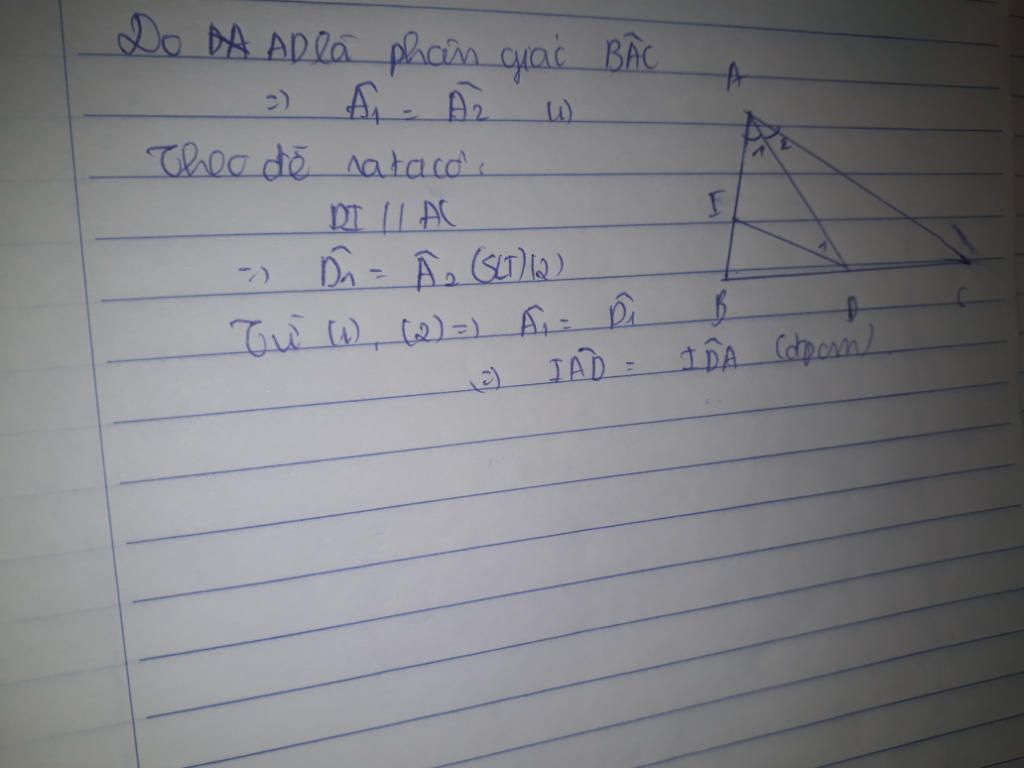 Do AD là phân giác BÂC
=> Â1 = Â2 (1)
Theo đề ra ta có:
DI // AC
=> D̂1 = Â2 (SLT) (2)
Từ (1), (2) => Â1 = D̂1
=> IÂD = ID̂A (đpcm)
A
1 2
I
1
B D C